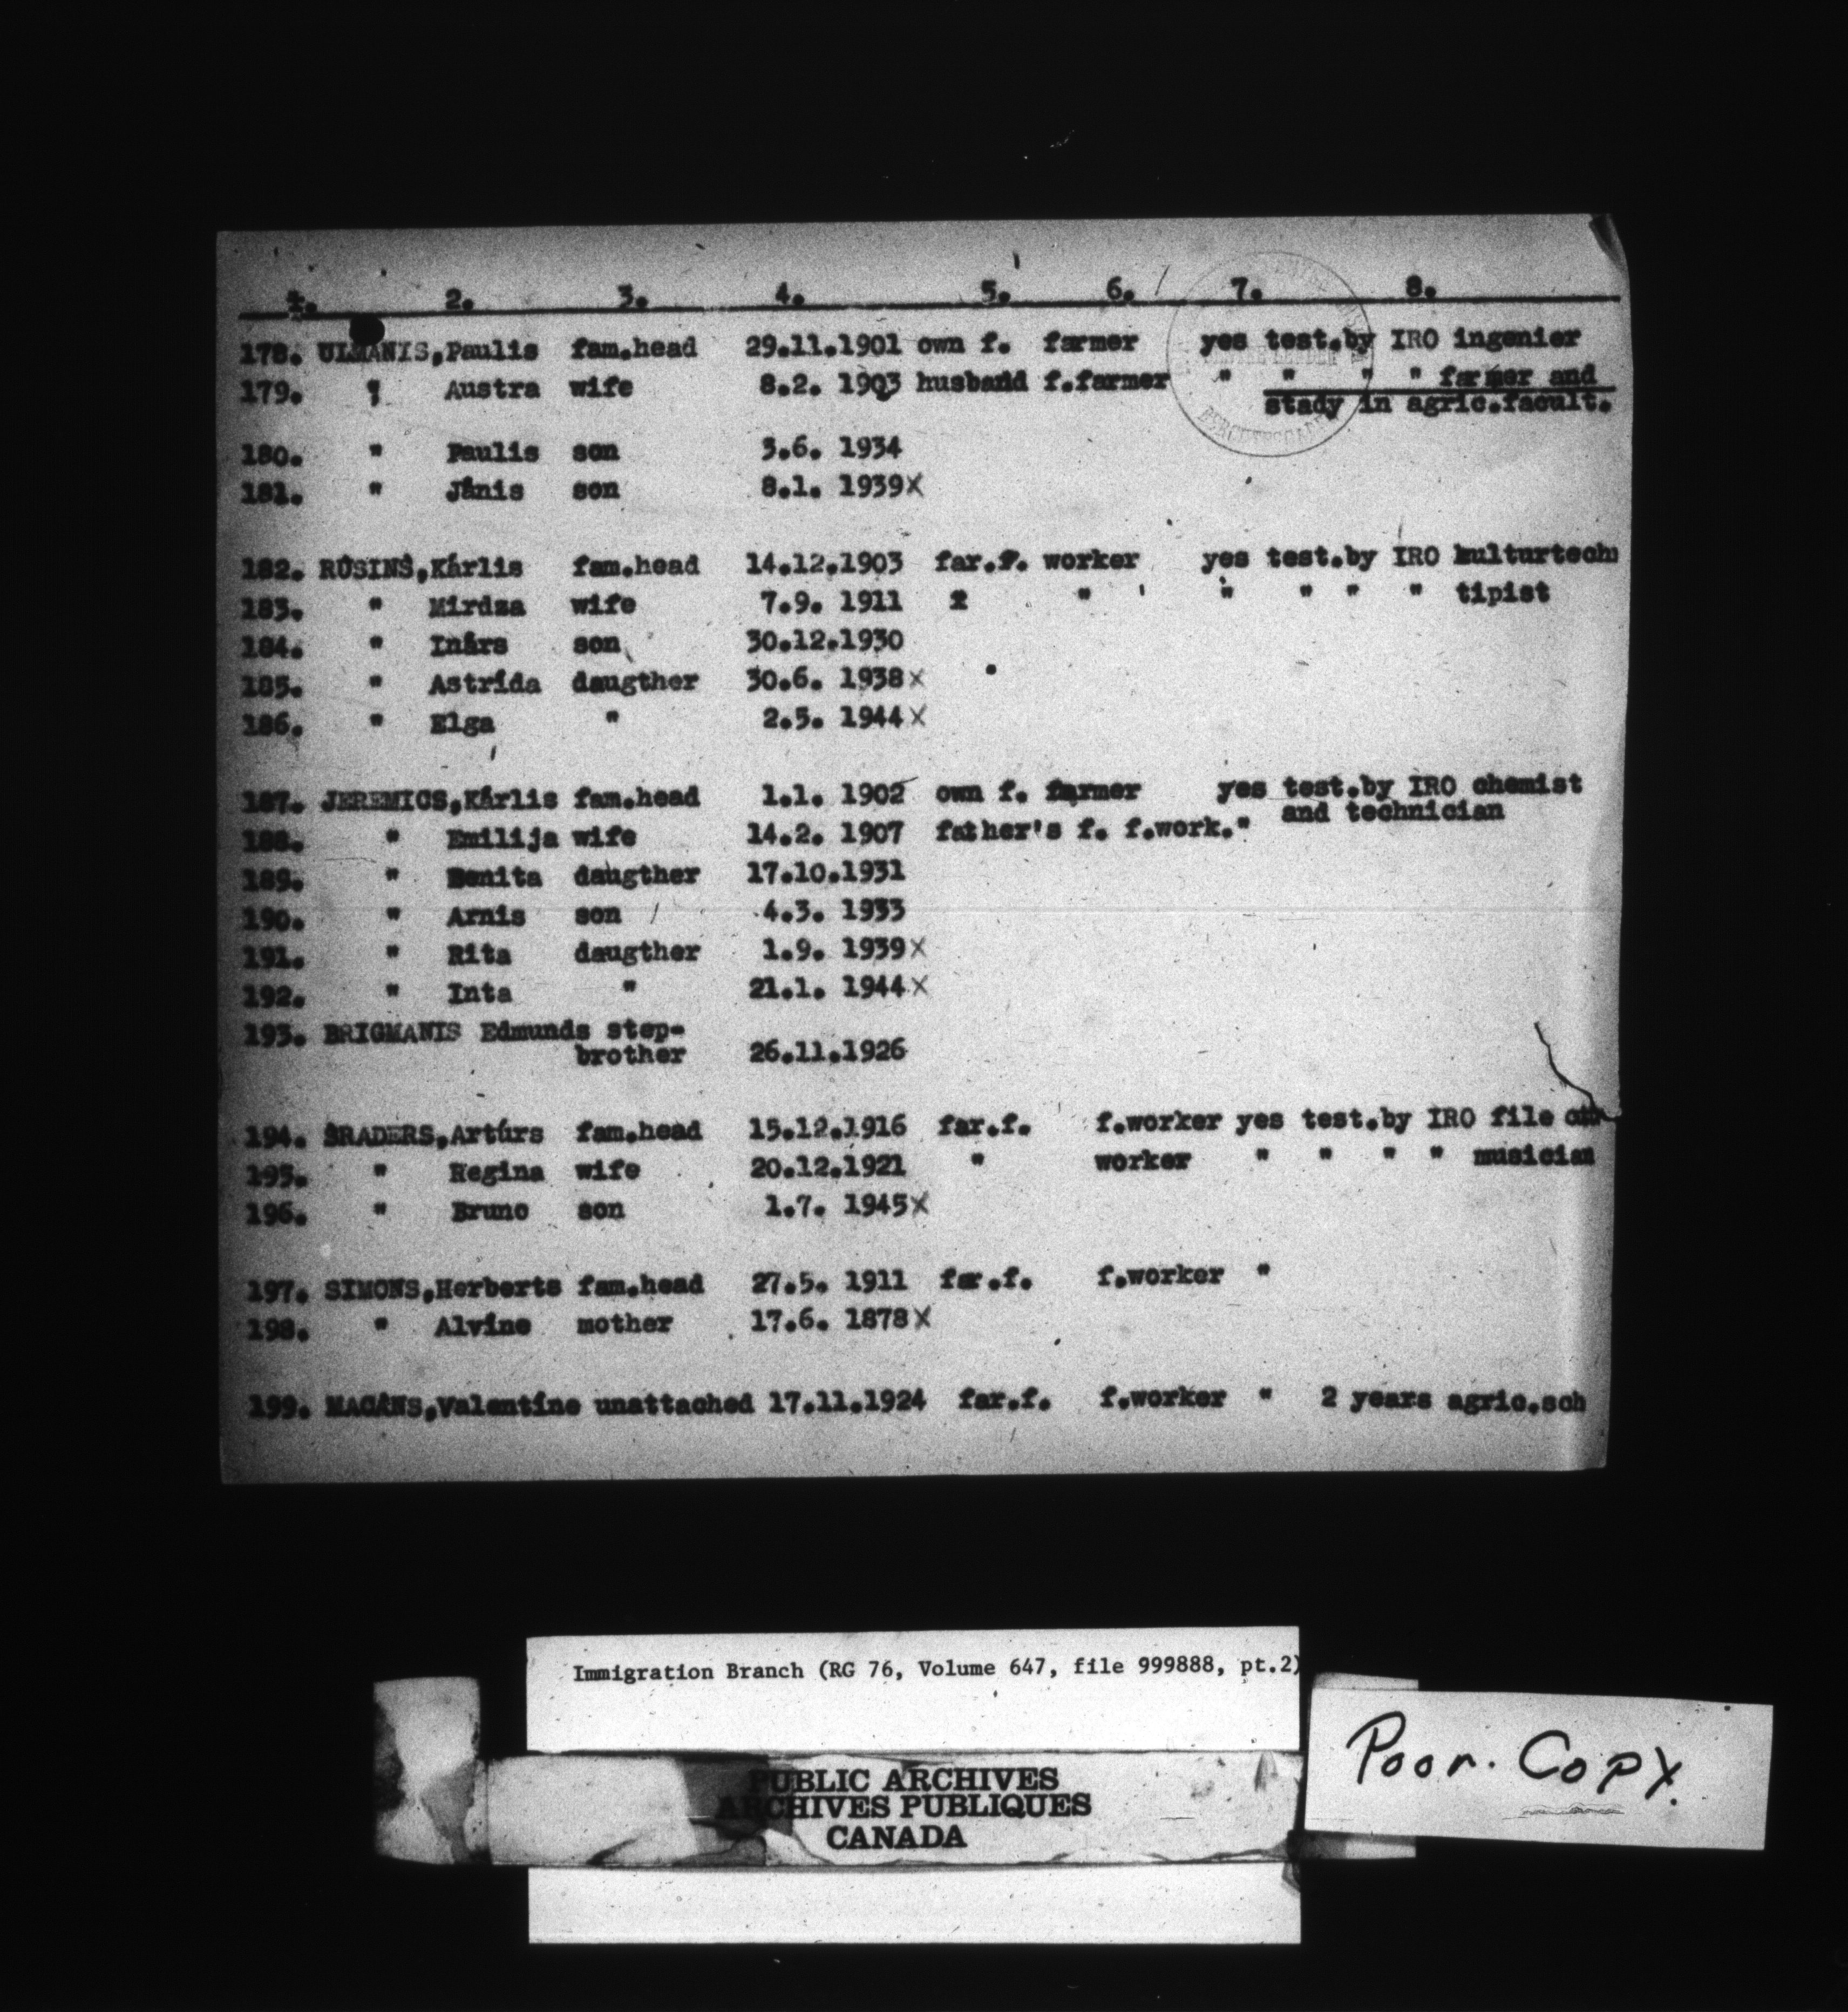 1. 2. 3. 4. 5. 6. 7. 8.
178. ULMANIS,Paulis fam.head 29.11.1901 own f. farmer yes test.by IRO ingenier
179. " Austra wife 8.2. 1903 husband f.farmer " " " " farmer and
stady in agric.facult.
180. " Paulis son 3.6. 1934
181. " Jânis son 8.1. 1939x
182. RÚSINŠ,Kárlis fam.head 14.12.1903 far.f. worker yes test.by IRO kulturtech
183. " Mirdza wife 7.9. 1911 " " " " " tipist
184. " Inârs son 30.12.1930
185. " Astrída daugther 30.6. 1938x
186. " Elga " 2.5. 1944x
187. JEREMICS,Kárlis fam.head 1.1. 1902 own f. farmer yes test.by IRO chemist
and technician
188. " Emilija wife 14.2. 1907 father's f. f.work."
189. " Benita daugther 17.10.1931
190. " Arnis son 4.3. 1933
191. " Rita daugther 1.9. 1939x
192. " Inta " 21.1. 1944x
193. BRIGMANIS Edmunds step-
brother 26.11.1926
194. ŠRADERS,Artúrs fam.head 15.12.1916 far.f. f.worker yes test.by IRO file
195. " Regina wife 20.12.1921 " worker " " " " musician
196. " Bruno son 1.7. 1945x
197. SIMONS,Herberts fam.head 27.5. 1911 far.f. f.worker "
198. " Alvíne mother 17.6. 1878x
199. MACÂNS,Valentíne unattached 17.11.1924 far.f. f.worker " 2 years agric.sch
Immigration Branch (RG 76, Volume 647, file 999888, pt.2)
PUBLIC ARCHIVES
ARCHIVES PUBLIQUES
CANADA
Poor. Copy.